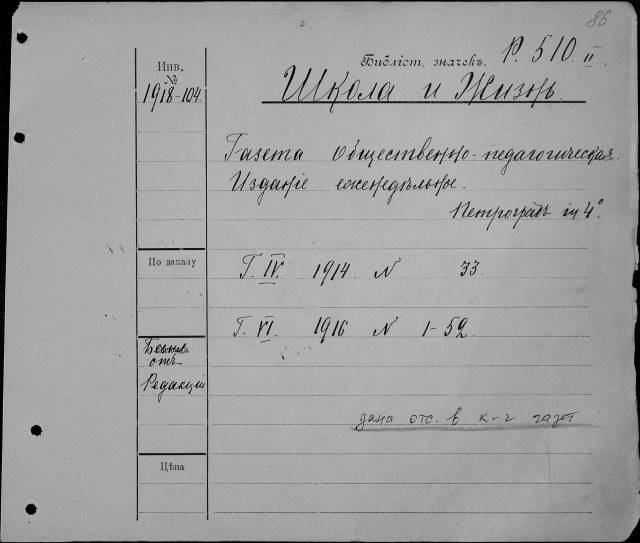 86
Библіот. значекъ. P. 510. II
Инв.
№
1918-104.
Школа и Жизнь.
Газета общественно-педагогическая.
Изданіе еженедѣльное.
Петроградъ in 4°.
По заказу
Г. IV. 1914 N 33.
Г. VI. 1916 N 1-52.
отъ
Редакціи
дана отс. в к-г газет
Цѣна